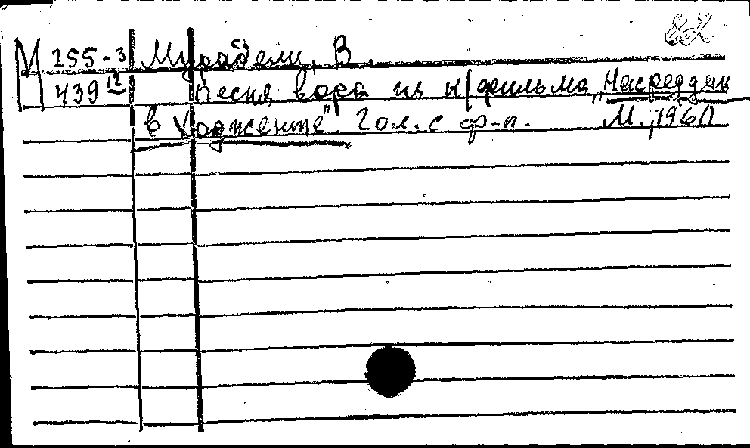 М 155-3 Мурадели, В.
439 Песня вора из к/фильма „Насреддин
в Ходженте". Гол. с ф-п. М., 1960